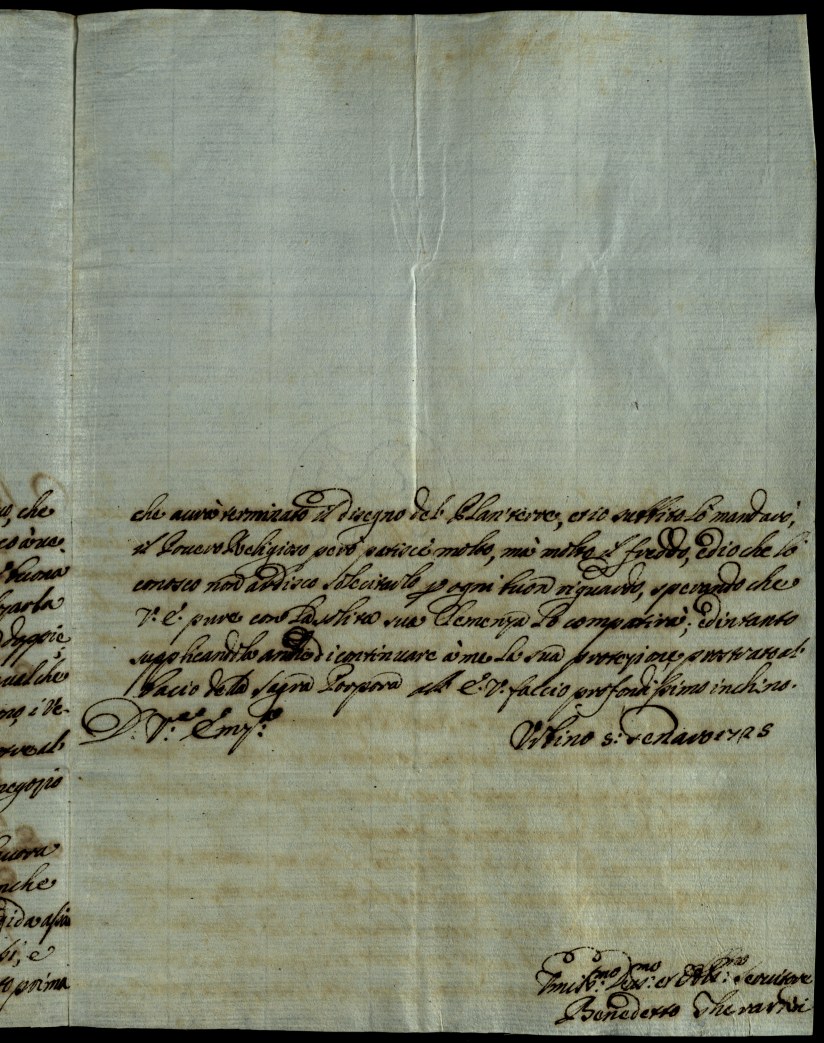 o, che
buona
doppie
qual che
negozio
ancora
nche
bi, e
to prima
che aurà terminato il disegno del Plan'terre, et io subbito lo mandarò,
il Pouero Religioso però patisce molto, mà molto il freddo, ed io che lo
conosco non ardisco solecitarlo p ogni buon riguardo, sperando che
V. E. pure con la solita sua Clemenza lo compatirà; ed intanto
supplicandola di continuare à me la sua protezione prostrato al
bacio della Sagra Porpora all' E. V. faccio profondissimo inchino.
D. V.ra Em.za
Urbino 5: Genaro 1725
Umil.mo Deu.mo et Obb.mo Seruitore
Benedetto